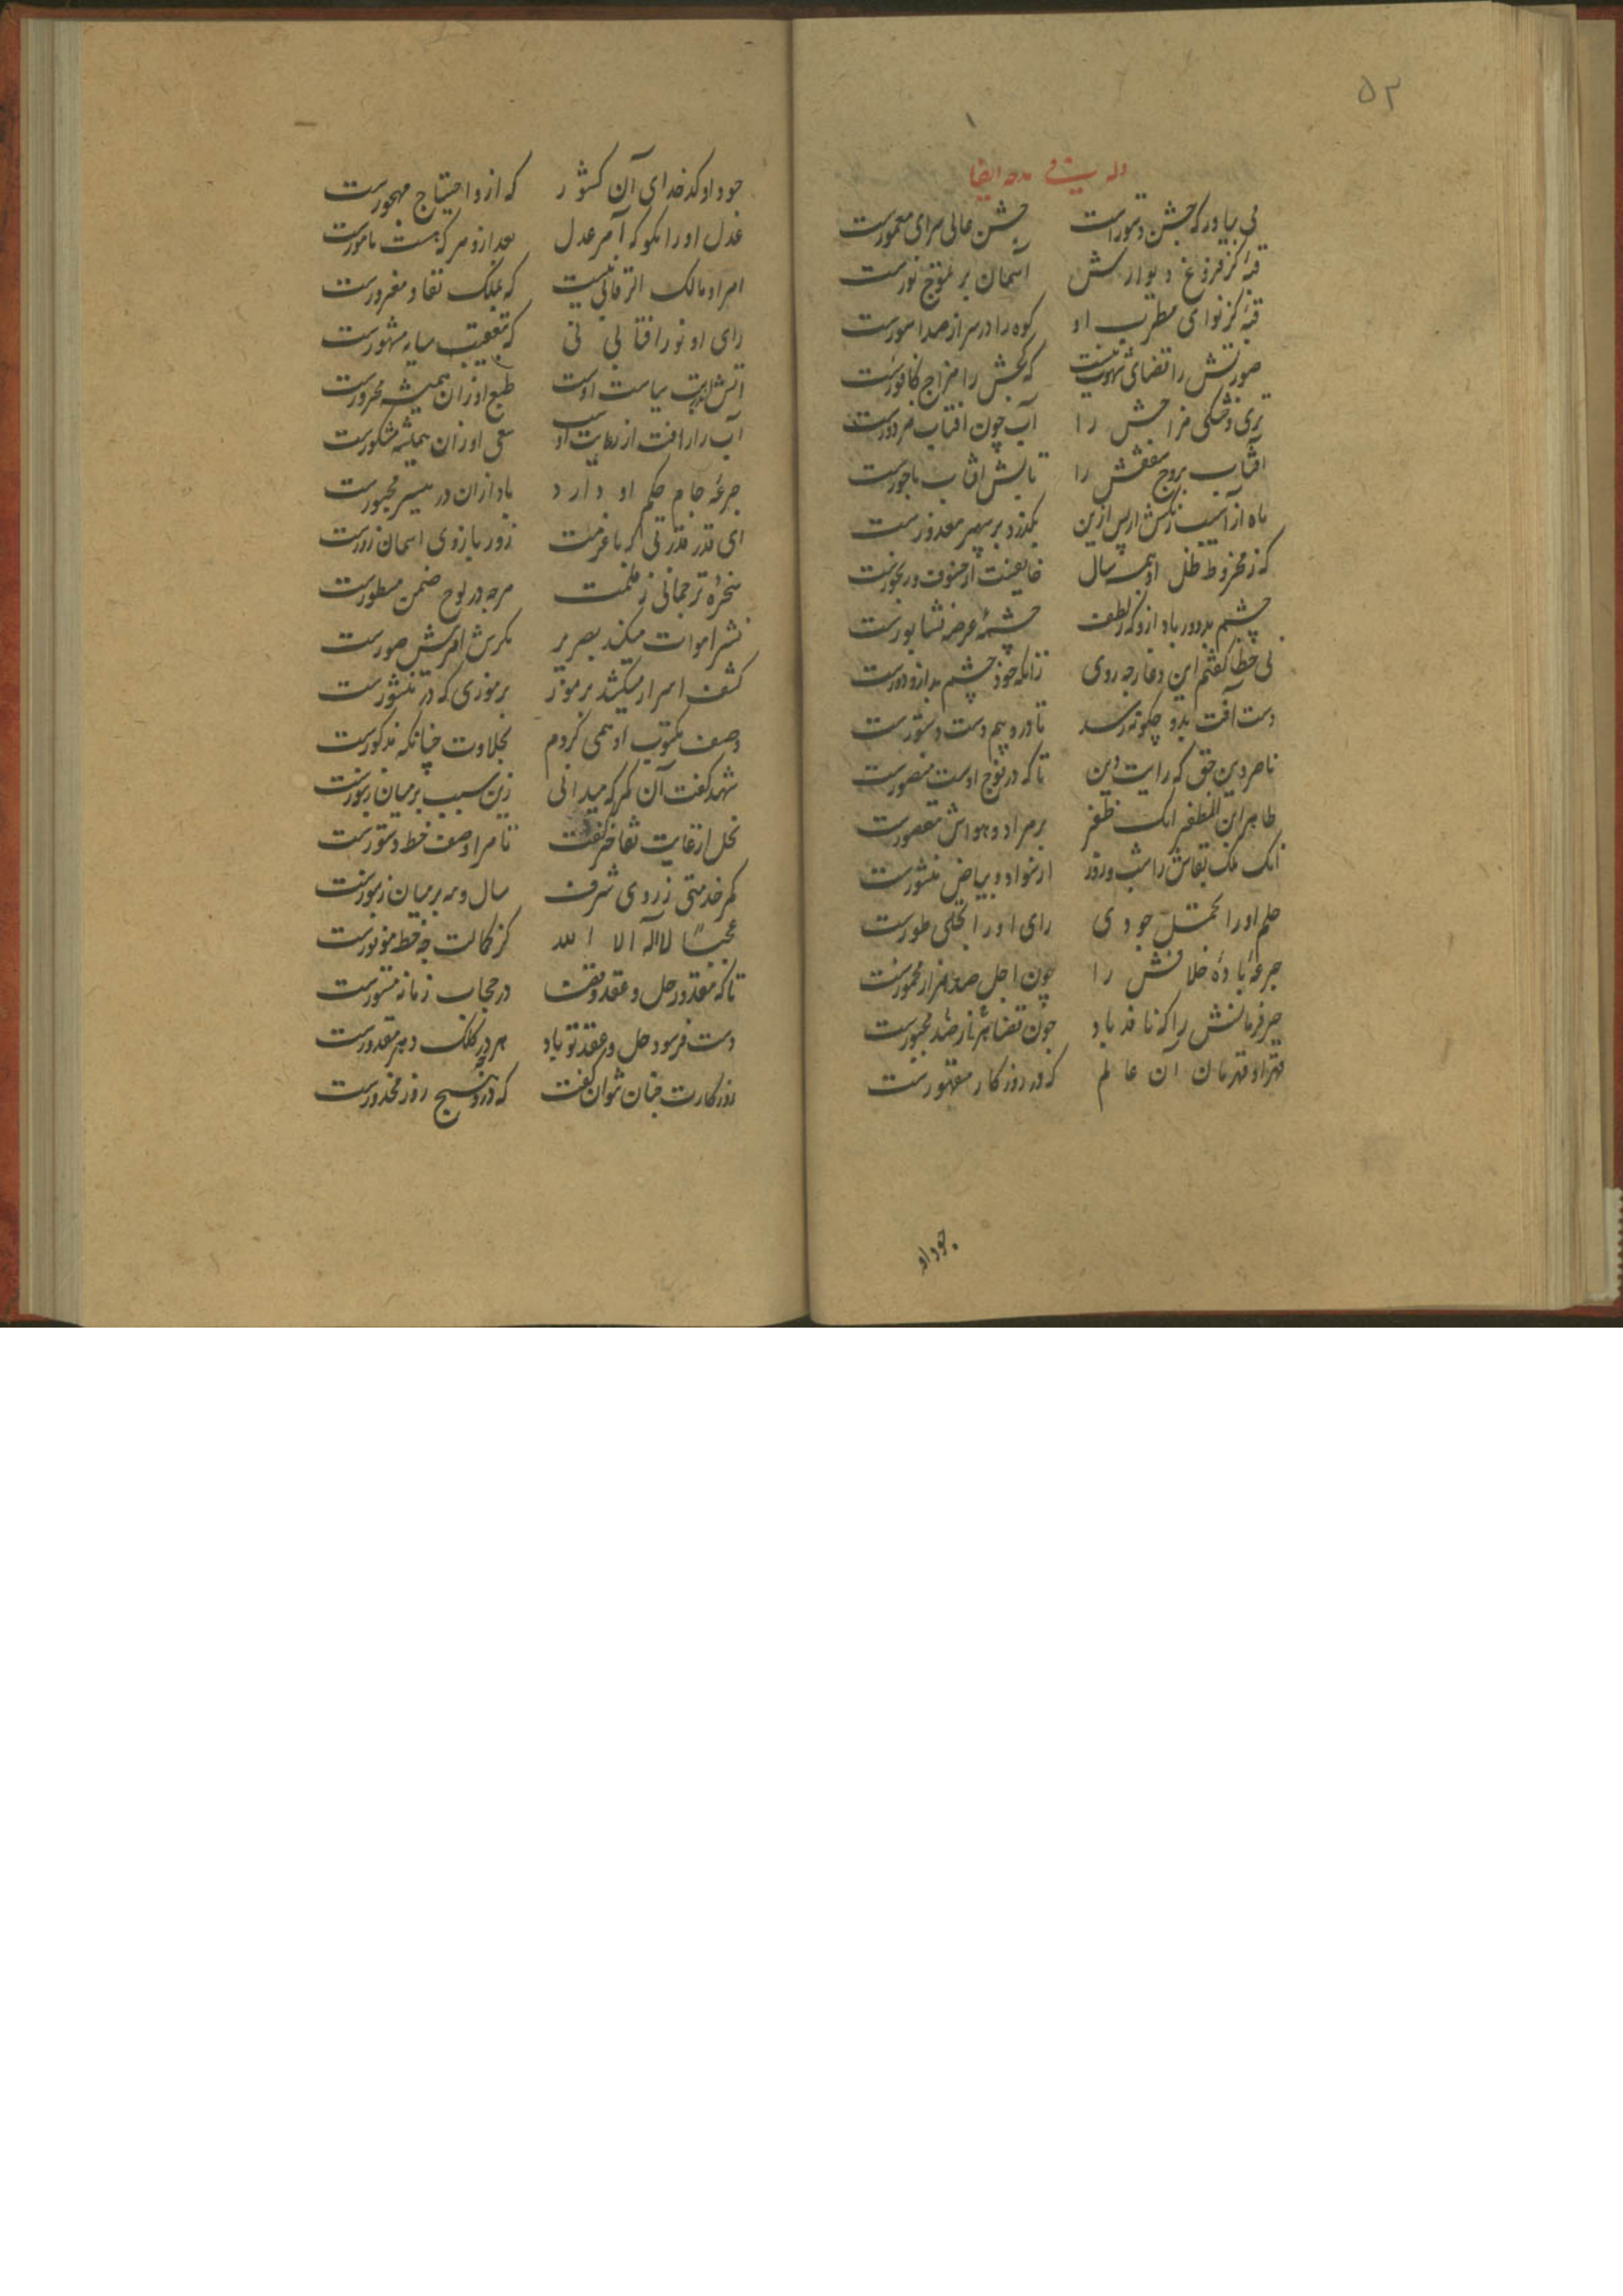 ۵۲
وله یمدحه ایضا
می بیاور که جشن دستورست جشن عالی سرای معمورست
قبهٔ کز فروغ دیوارش آسمان بر تموج نورست
قبهٔ کز نوای مطرب او کوه را در سر از صدا سورست
صورتش را قضای شهوت نیست که گچش را مزاج کافورست
تری و خشکی مزاجش را آب چون آفتاب مزدورست
آفتاب بروج سقفش را تابش آفتاب باحورست
ماه از آسیب زنگش ار پس ازین نگذرد بر سپهر معذورست
که ز مخروط ظل او همه سال خایف از خسوف و رنجورست
چشم بد دور باد ازو که ز لطف چشمهٔ عرصه نشابورست
بی خطا گفتم این دعا چه روی زانکه خود چشم بد ازو دورست
دست آفت بدو چگونه رسد تا درو یمن دست دستورست
ناصر دین حق که رایت دین تا که در فوج اوست منصورست
طاهر ابن المظفر آنک ظفر بر مراد و هواش مقصورست
آنک ملک بقاش را شب و روز از سواد و بیاض منشورست
حلم او را تحمل جودی رای او را تجلی طورست
جرعهٔ بادهٔ خلافش را چون اجل صد هزار مخمورست
جبر فرمانش را که نافذ باد چون قضا هزار صد مجبورست
قهر او قهرمان آن عالم که درو روزگار مقهورست
جود او
جود او کدخدای آن کشور که ازو احتیاج مهجورست
عدل او را مگو که آمر عدل بعد ازو هر که هست مامورست
امر او مالک الرقابی نیست که بملک نفاد مغرورست
رای او نور آفتابی نی که بتعقیب سایه مشهورست
آتش اندر تب سیاست اوست طبع او زان همیشه محرورست
آب را رأفت از رعایت او سعی او زان همیشه مشکورست
جرعهٔ جام حکم او دارد باد ازان در مسیر مجبورست
ای قدر قدرتی که با عزمت زور بازوی آسمان زورست
سخرهٔ ترجمانی قلمت هرچه در لوح ضمن مسطورست
نشر اموات میکند بصریر مگرش آفرینش صورست
کشف اسرار میکند برموز بر رموزی که در منشورست
وصف مکتوب او همی کردم بحلاوت چنانکه مذکورست
شهد گفت آن کمر که میدانی زین سبب بر میان زنبورست
نحل از غایت تفاخر گفت تا مرا وصف خط دستورست
کمر خدمتی ز روی شرف سال و مه بر میان زنبورست
عجبا لا اله الا الله کز کمالت چه حظ موفورست
تا که مقدور حل و عقد وقت در حجاب زمانه مستورست
دست فرسود حل و عقد تو باد هرچه در ملک دهر مقدورست
روزگارت چنان توان گفت که درو نسج روز محذورست